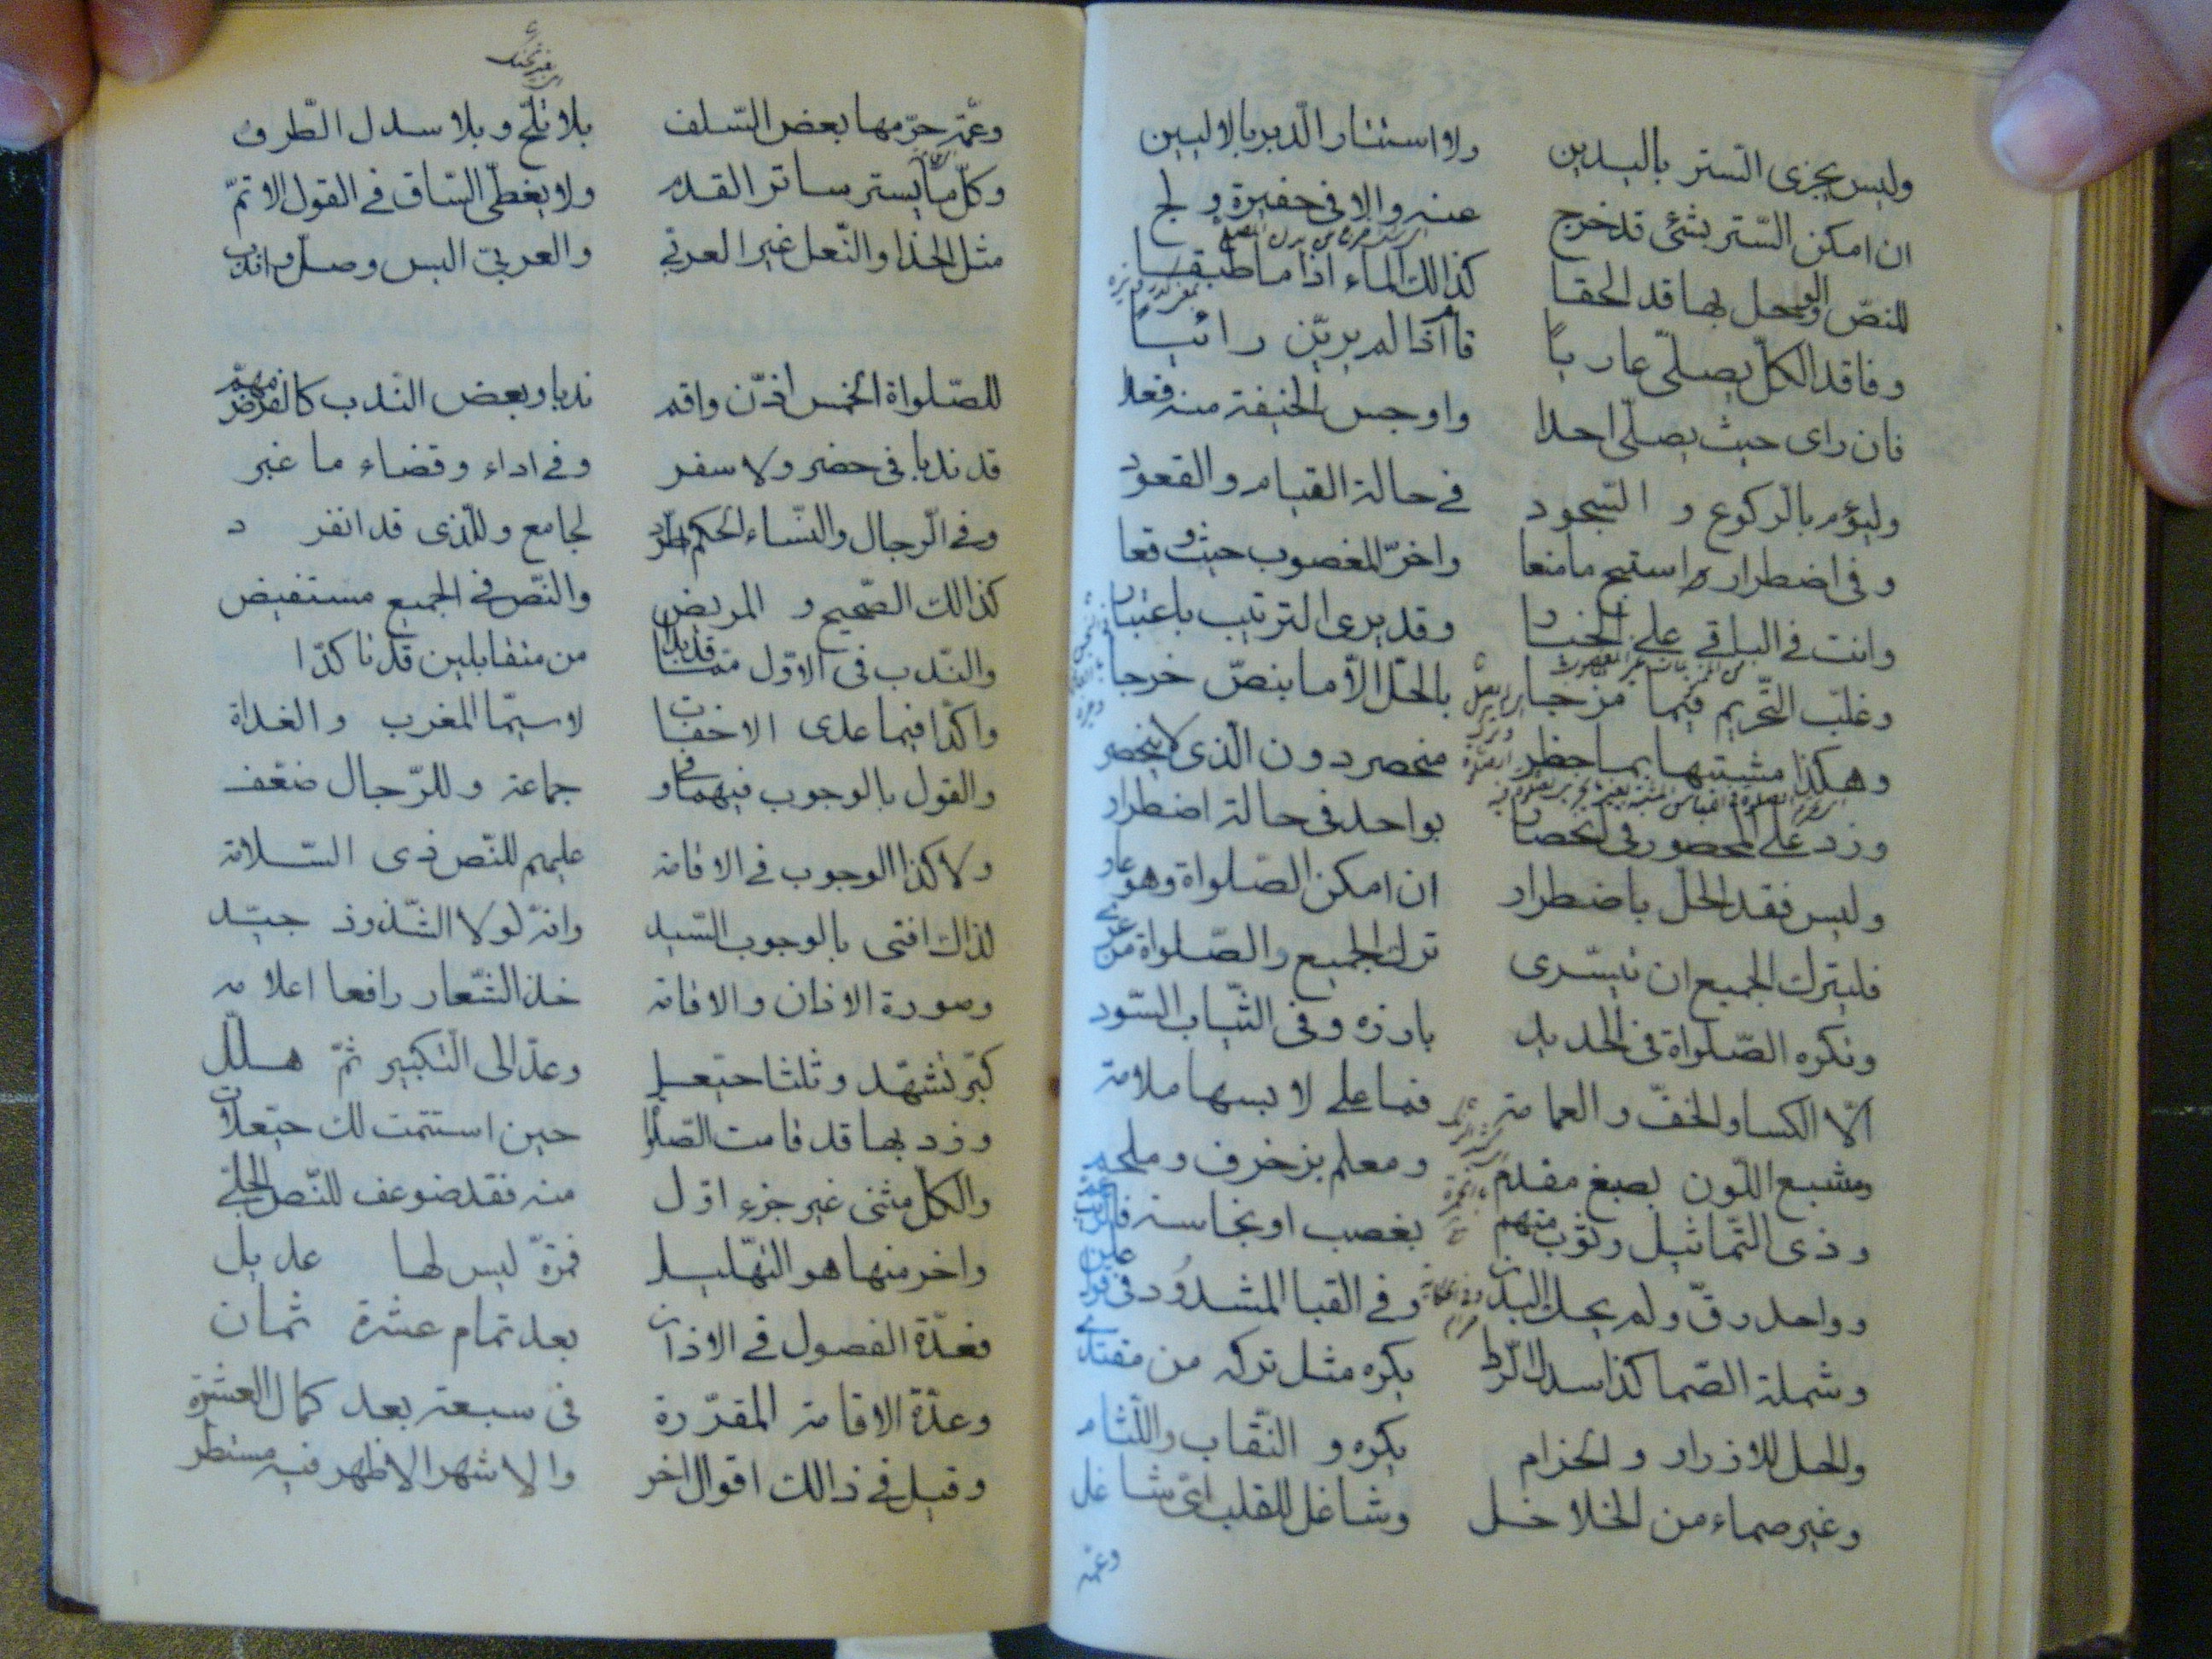 وليس يجزى الستر باليدين ولا استتار الدبر بالاليين
ان امكن الستر بشئ قد خرج عنه والا فى حفيرة ولج
للنص والوحل بها قد الحقا كذالك الماء اذا ما طبقا
وفاقد الكل يصلى عاريا قائما اذا لم يرين رائيا
فان راى حيث يصلى احدا واوجس الخيفة منه قعدا
وليؤم بالركوع و السجود فى حالة القيام والقعود
وفى اضطرار استبح ما منعا واخر المغصوب حيث وقعا
وانت فى الباقى على الخيار وقد يرى الترتيب باعتبار
وغلب التحريم فيما مزجا بالحل الا ما بنص خرجا
وهكذا مشتبها بما حظر منحصر دون الذى لا ينحصر
وزد على المحصور فى انحصار بواحد فى حالة اضطرار
وليس فقد الحل باضطرار ان امكن الصلواة وهو عار
فليترك الجميع ان تيسرى ترك الجميع والصلواة من عرى
وتكره الصلواة فى الحديد بارزه وفى الثياب السود
الا الكسا والخف و العمامة فما على لابسها ملامة
ومشبع اللون بصبغ مفدم ومعلم بزخرف وملحم
وذى التماثيل وثوب متهم بغصب او نجاسة
وواحد رق ولم يحك البدن وفى القبا المشدود فى قول
وشملة الصما كذا سدل الردا يكره مثل تركه من مقتدى
والحل للازرار و الحزام يكره و النقاب واللثام
وغير صماء من الخلاخل وشاغل للقلب اى شاغل
وعمة
وعمة حرمها بعض السلف بلا تلح وبلا سدل الطرف
وكل ما يستر ساتر القدم ولا يغطى الساق فى القول الاتم
مثل الحذا والنعل غير العربى والعربى البس وصل واندب
للصلواة الخمس اذن واقم ندبا وبعض الندب كالفرض مهم
قد ندبا فى حضر ولا سفر وفى اداء وقضاء ما غبر
وفى الرجال والنساء الحكم طرد لجامع وللذى قد انفرد
كذالك الصحيح و المريض والنص فى الجميع مستفيض
والندب فى الاول مما قد بدا من متقابلين قد تاكدا
واكدا فيما عدى الاخفات لا سيما المغرب والغداة
والقول بالوجوب فيهما وفى جماعة وللرجال ضعف
ولا كذا الوجوب فى الاقامة عليهم للنص ذى السلامة
لذاك افتى بالوجوب السيد وانه لولا الشذوذ جيد
وصورة الاذان والاقامة خذ الشعار رافعا اعلامه
كبر تشهد وثلثا حيعل وعد الى التكبير ثم هلل
وزد بها قد قامت الصلواة حين استتمت لك حيعلات
والكل مثنى غير جزء اول منه فقد ضوعف للنص الجلى
واخر منها هو التهليل فمرة ليس لها عديل
فعدة الفصول فى الاذان بعد تمام عشرة ثمان
وعدة الاقامة المقررة فى سبعة بعد كمال العشرة
وقيل فى ذالك اقوال اخر والاشهر الاظهر فيه مستطر